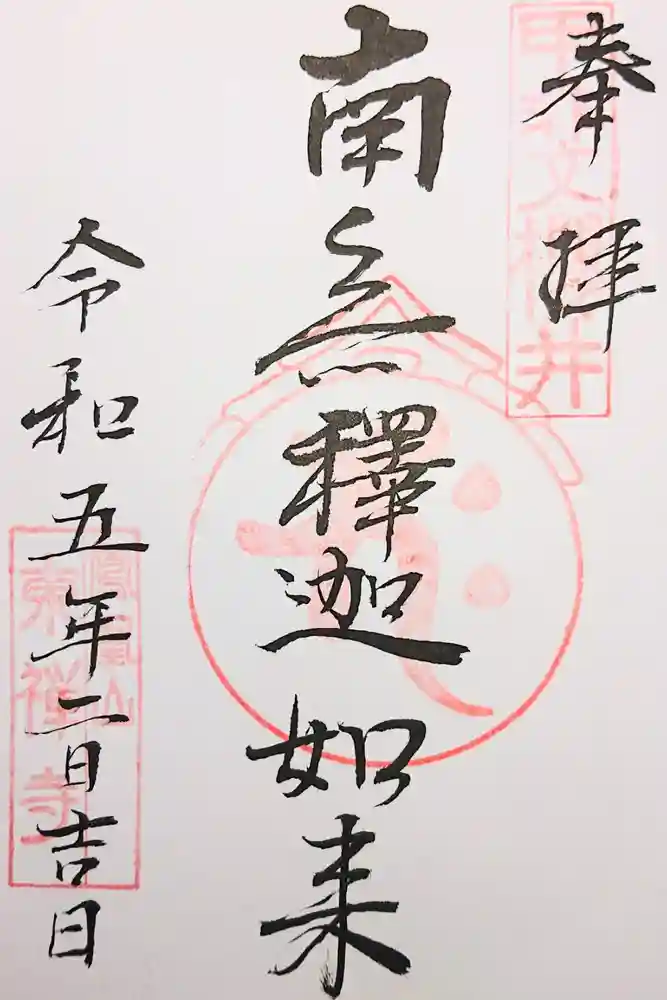 奉拝
南無釋迦如来
令和五年二日吉日
鳳凰山
東禅寺